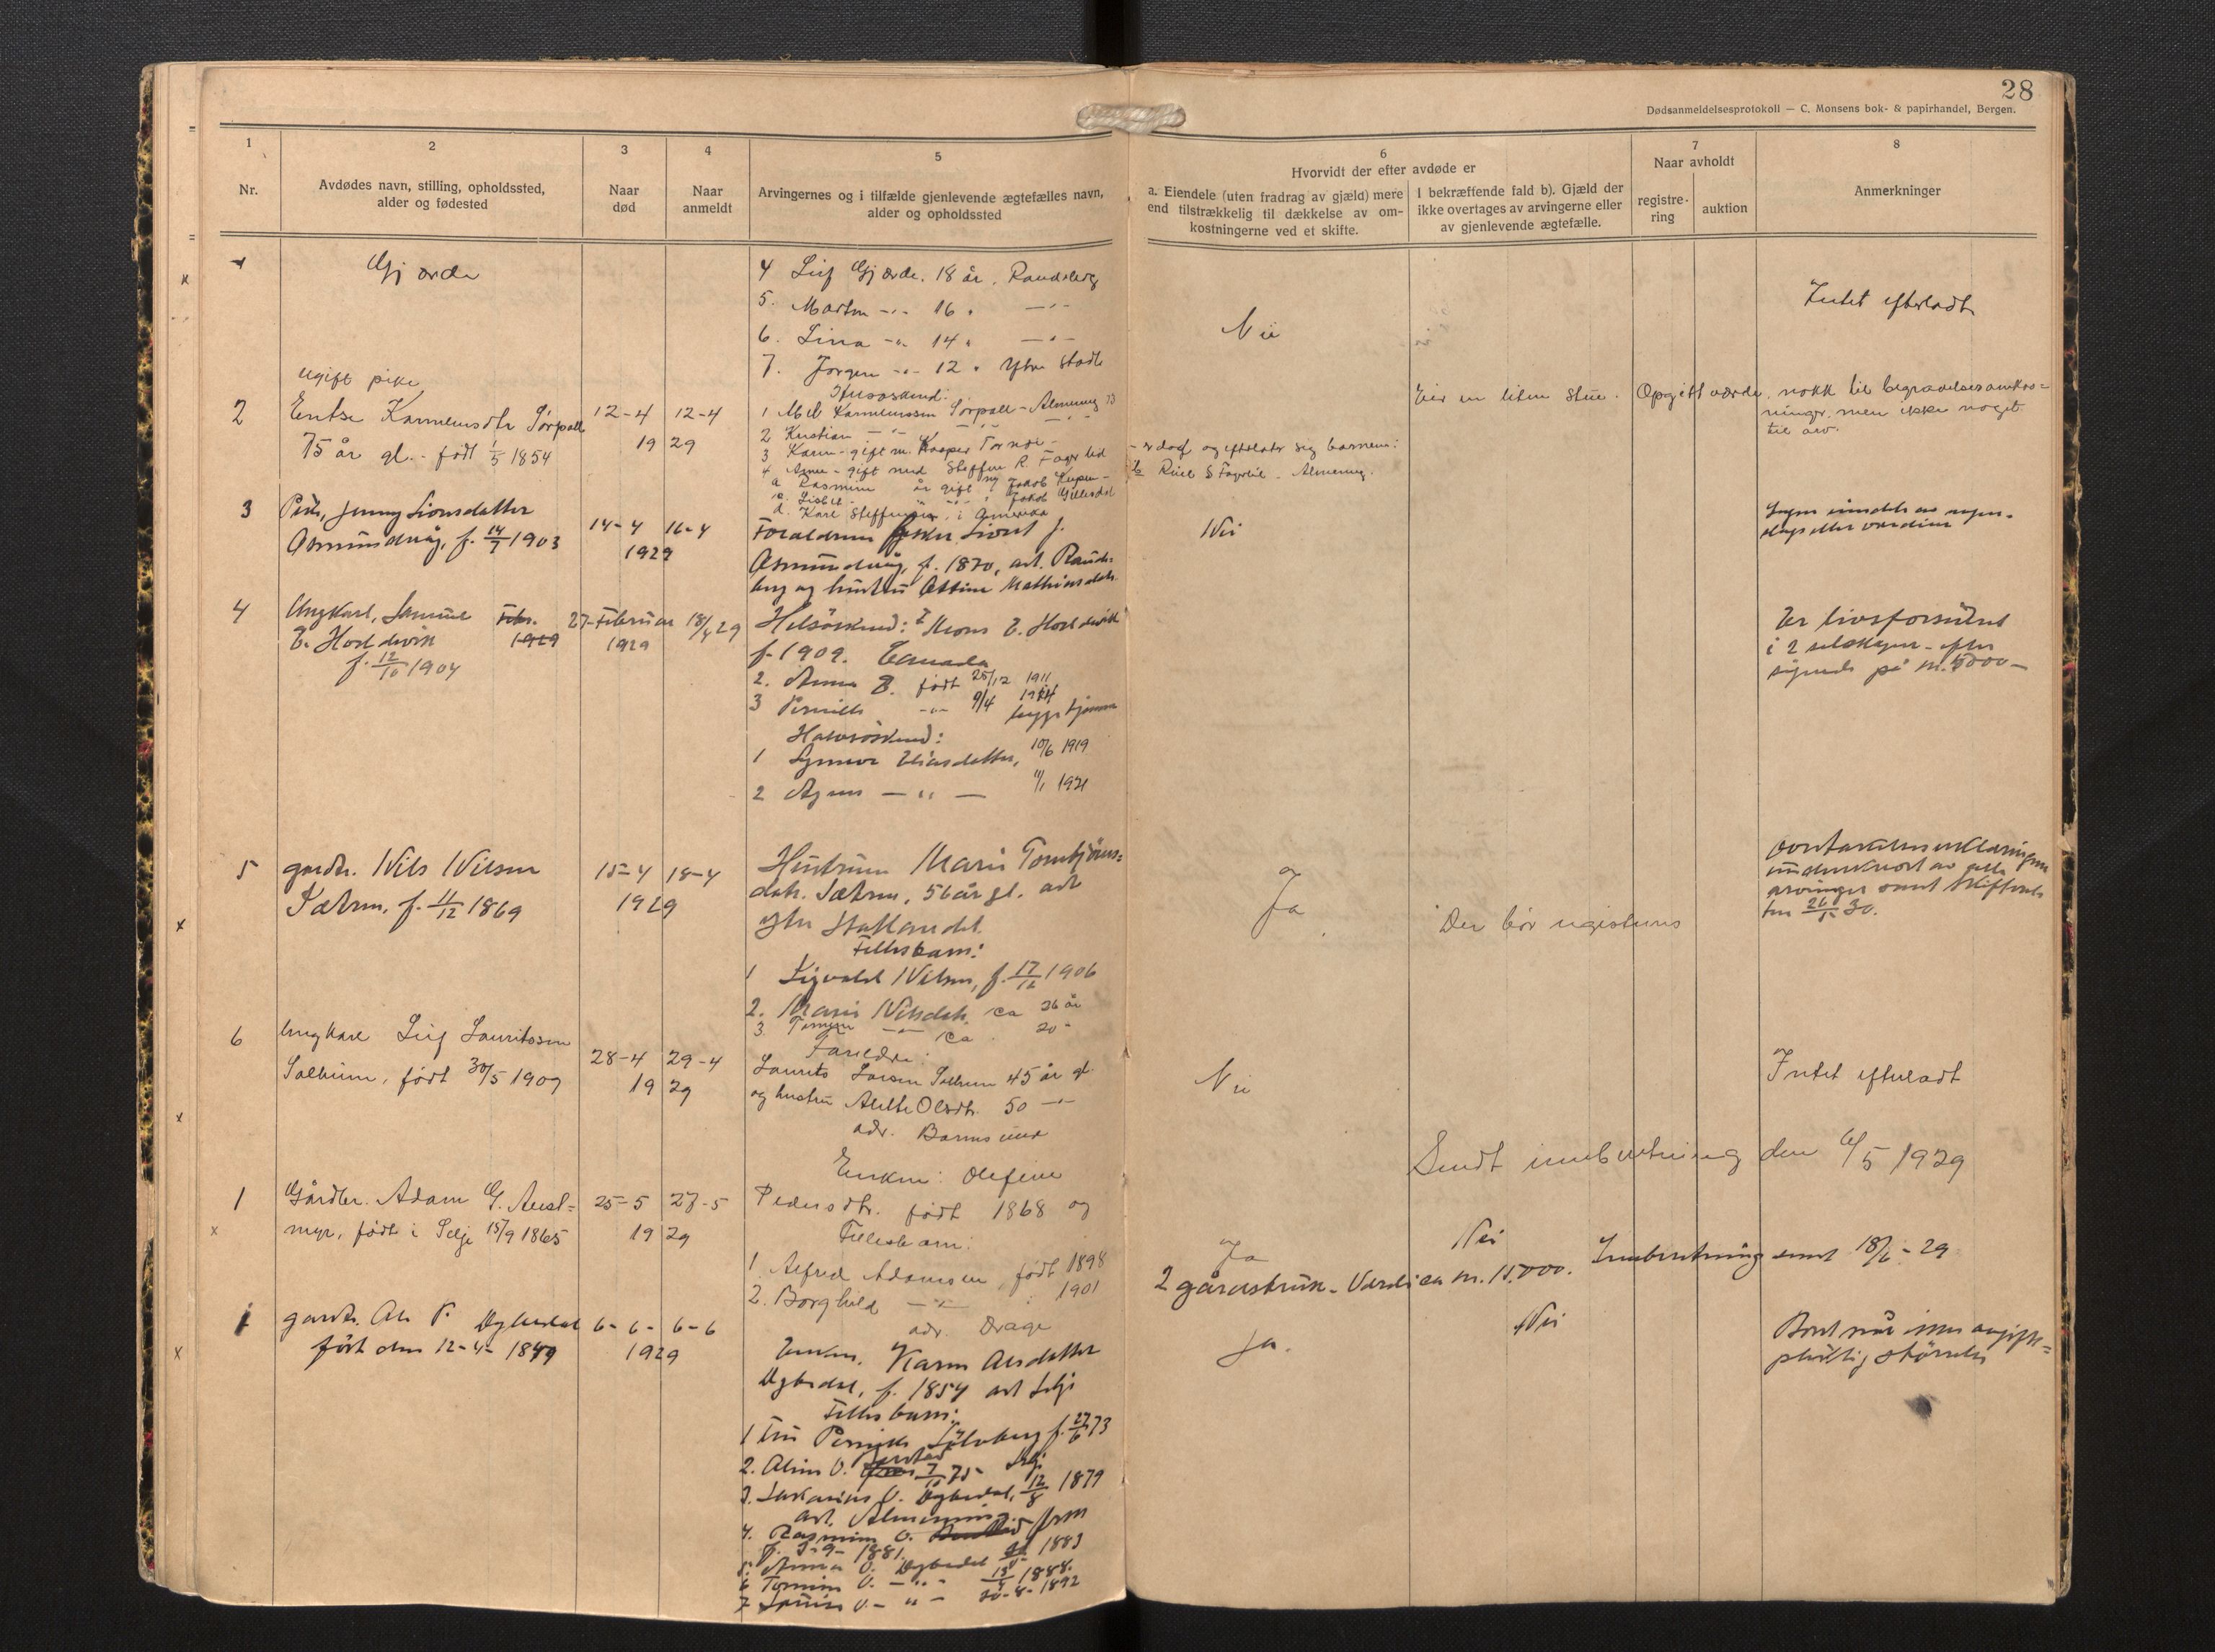 28
Dødsanmeldelsesprotokoll — C. Monsens bok- & papirhandel, Bergen.
1
2
3
4
5
6
7
8
Nr.
Avdødes navn, stilling, opholdssted,
alder og fødested
Naar
død
Naar
anmeldt
Arvingernes og i tilfælde gjenlevende ægtefælles navn,
alder og opholdssted
Hvorvidt der efter avdøde er
a. Eiendele (uten fradrag av gjæld) mere
end tilstrækkelig til dækkelse av om-
kostningerne ved et skifte.
I bekræftende fald b). Gjæld der
ikke overtages av arvingerne eller
av gjenlevende ægtefælle.
Naar avholdt
registre-
ring
auktion
Anmerkninger
Gjørde
4 Leif Gjørde. 18 år. Raudeberg
5. Martin -"- 16 " -"-
6. Lina -"- 14 " -"-
7. Jørgen -"- 12 " Ytre Stadt
Nei
Intet efterladt
2
ugift pike
Karnelusdtr Sørpoll
75 år gl. - født 1/5 1854
12-4
12-4
1929
Helsøskend:
Sørpoll - Almenning
2 Kristian -"-
3 Karen - gift m. Kasper
4 - gift med Steffen R. Fagerlid
a Rasmine
Lisbet
d. Karl Steffensen, i Amerika
- er død og efterlater sig barnene:
Fagerlid - Almenning.
Eier en liten stue. Opgitt værde, nokk til begravelsesomkos=
tninger, men ikke noget
til arv.
3
Pike, Jenny Sionsdatter
Osmundvåg, f. 14/7 1903
14-4
16-4
1929
Forældrene fisker Siont J.
Osmundvåg, f. 1870, adr. Raude-
berg og hustru Mathiasdtr.
Nei
Ingen eiendele av
eller verdier
4
Ungkarl,
E. Hoddevik
f. 12/10 1904
Febr.
1929
27-Februar
1929
18/4 29
Helsøskend: 1 Mons E. Hoddevik
f. 1909. Canada
2. Anna E. født 25/12 1911
3 Pernille -"- 9/4 1914
begge hjemme
Halvsøskend:
1 Synnøve Eliasdatter, 10/6 1919
2 Agnes -"- 11/1 1921
Er livsforsikret
i 2 selskaper - efter
sigende på kr. 5000-
5
gardbr. Nils Nilsen
Sætren, f. 11/12 1869
15-4
18-4
1929
Hustruen Marie Torbjørns=
datr. Sætren, 56 år gl. adr
ytre Stattlandet.
Fellesbarn:
1 Sigvald Nilsen, f. 17/12 1906
2. Marie Nilsdatr. ca 26 år
3. -"- ca 20 -
Ja
Der bør registreres
av alle
arvinger
6
Ungkarl Leif Lauritssen
Salhum, født 30/5 1909
28-4
29-4
1929
Forældre:
Laurits Larsen 45 år gl
og hustru Alette Olsdtr. 50 -"-
adr. Barmsund
Nei
Intet efterladt
Sendt innberetning den 6/5 1929
1
Gårdbr. Adam G. Aust=
myr, født i Selje 15/9 1865
25-5
27-5
1929
Enken: Olefine
Pedersdtr. født 1868 og
Fellesbarn:
1 Alfred Adamsen, født 1898
2. Borghild -"- 1901
adr. Drage
Ja
Nei
2 gårdsbruk - Verdi ca kr. 15.000. Innberetning sendt 18/6 - 29
1
gardbr. Ole P. Dybedal
født den 12-4- 1849
6-6-
6-6
1929
Enken, Karen Olsdatter
Dybedal, f. 1854 adr Selje
Fellesbarn:
1 Fru Pernille f. 27/6 73
2. Oline O. 75 Selje
3. Sakarias O. Dybedal, 12/8 1879
adr. Almenning
4. Rasmine O.
f. 5-9-1881.
5. Anna O. Dybedal 1883
6 Tomine O. -"- 1888.
7 O. -"- 20-8-1892
Ja.
Nei
Boet når inn avgifts=
pliktig størrelse